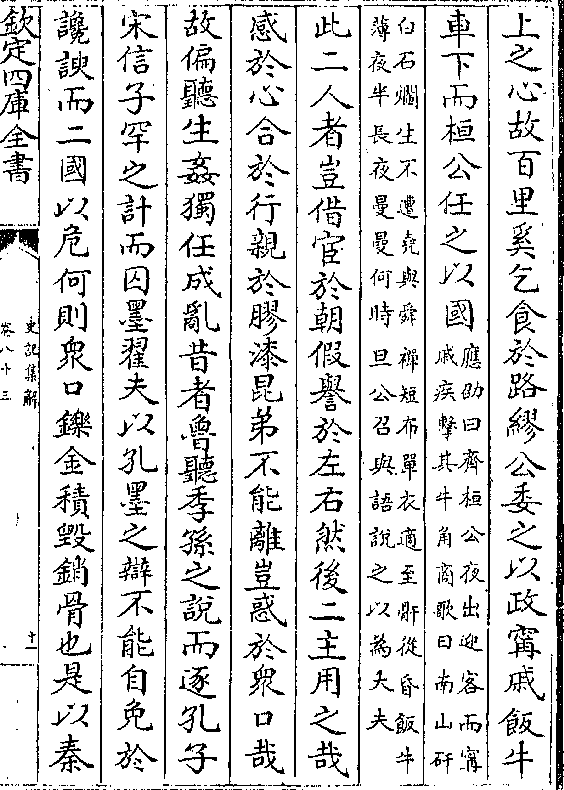 上之心故百里奚乞食於路繆公委之以政甯戚飯牛
車下而桓公任之以國
應劭曰齊桓公夜出迎客而甯
戚疾擊其牛角商歌曰南山矸
白石爛生不遭堯與舜禪短布單衣適至骭從昏飯牛
薄夜半長夜曼曼何時旦公召與語說之以為大夫
此二人者豈借宦於朝假譽於左右然後二主用之哉
感於心合於行親於膠漆昆弟不能離豈惑於衆口哉
故偏聽生姦獨任成亂昔者魯聽季孫之說而逐孔子
宋信子罕之計而囚墨翟夫以孔墨之辯不能自免於
讒諛而二國以危何則衆口鑠金積毀銷骨也是以秦
欽定四庫全書
史記集解
卷八十三
十一